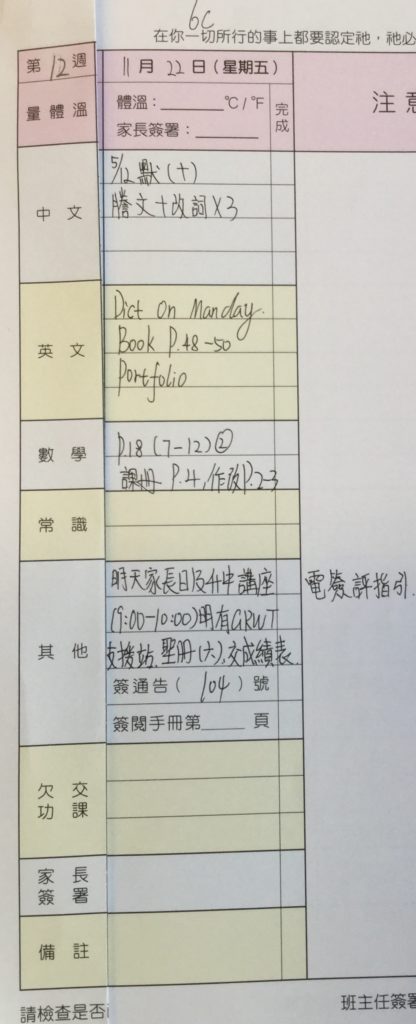 6C
在你一切所行的事上都要認定祂，祂必
第 12 週
11 月 22 日 (星期五)
量體溫
體溫：______ °C / °F
家長簽署：______
完成
注意
中 文
5/12 默(十)
謄文+改詞X3
英 文
Dict On Manday.
Book P.48-50
Portfolio
數 學
P.18 (7-12)②
課冊 P.4,作改P.2-3
常 識
其 他
明天家長日及升中講座
(9:00-10:00)明有GRWT
支援站,聖冊(六),交成績表.
電簽評指引.
簽通告 ( 104 ) 號
簽閱手冊第____ 頁
欠 交
功 課
家 長
簽 署
備 註
請檢查是否
班主任簽署